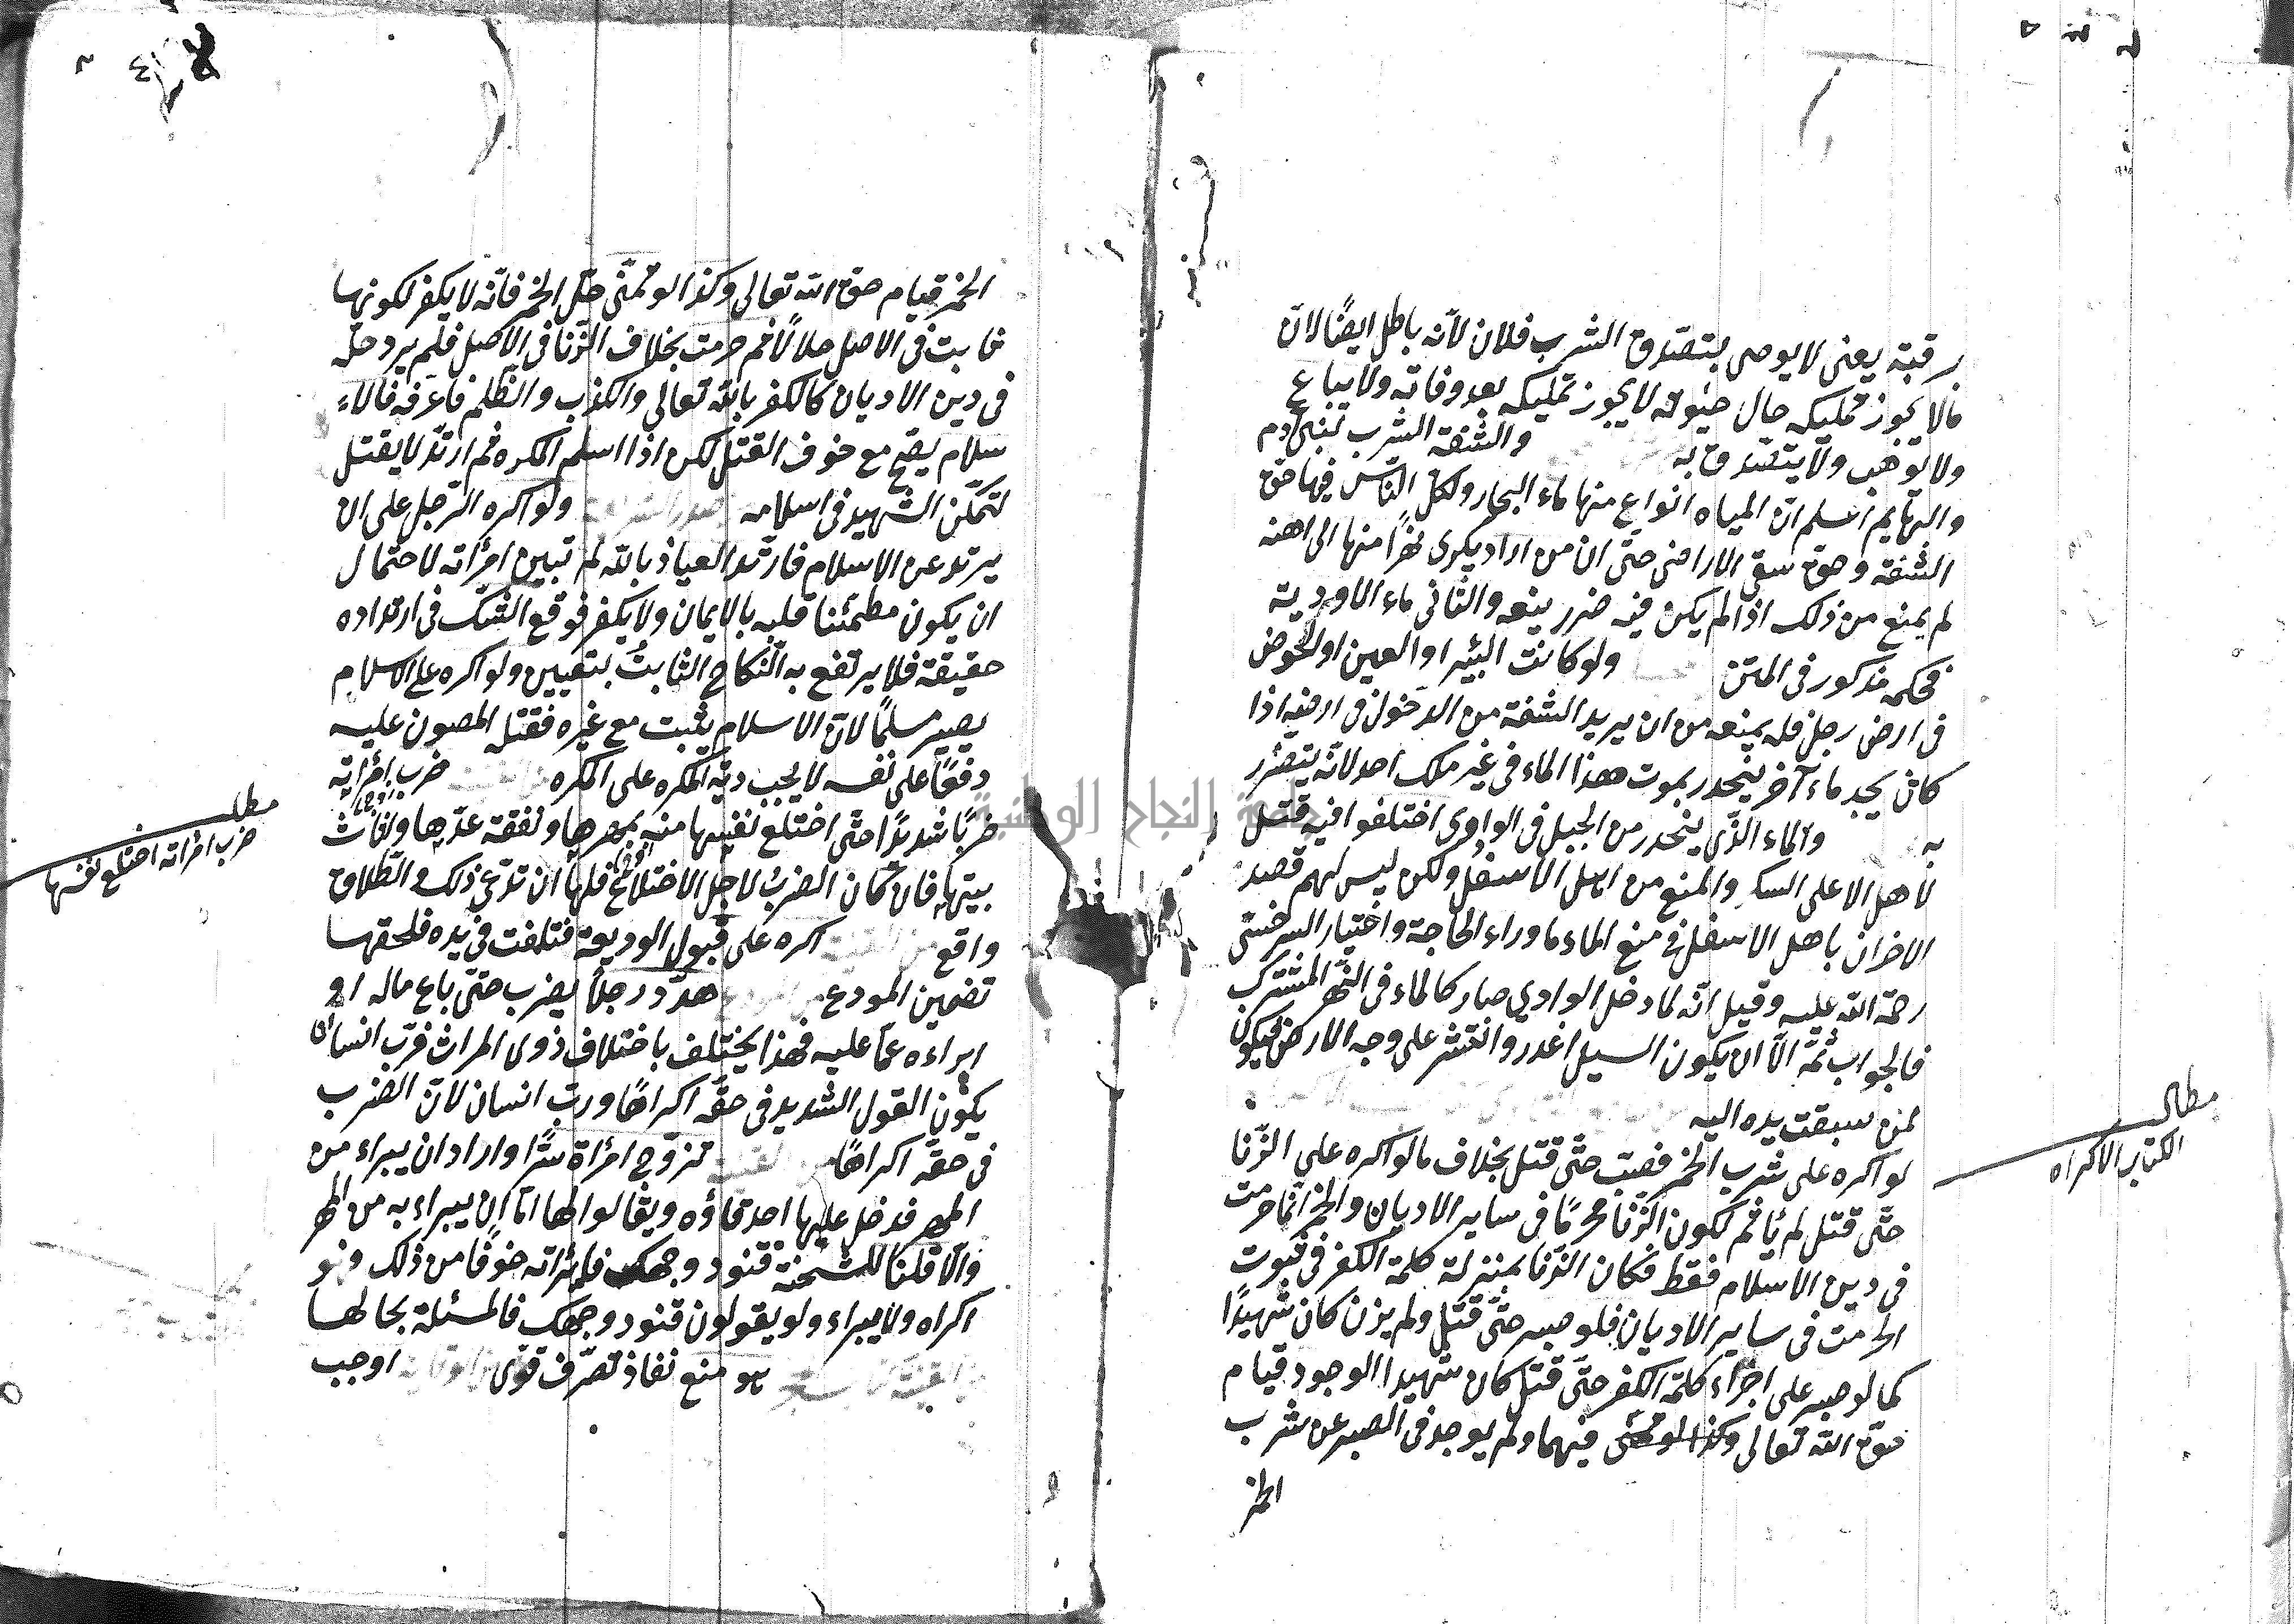 رقبته يعنى لا يوصى بتصدق الشرب فلان لانه باطل ايضًا لان
مالا يجوز تمليكه حال حيوته لا يجوز تمليكه بعد وفاته ولا يباع
ولا يوهب ولا يتصدق به والشفة الشرب لبنى ادم
والبهايم اعلم ان المياه انواع منها ماء البحار ولكل الناس فيها حق
الشفة وحق سقى الاراضى حتى ان من اراد يكرى نهرًا منها الى ارضه
لم يمنع من ذلك اذا لم يكن فيه ضرر بينه والثانى ماء الاودية
فحكمه مذكور فى المتن ولو كانت البئر او العين او الحوض
فى ارض رجل فله يمنعه من ان يريد الشفة من الدخول فى ارضه اذا
كان يجد ماء آخر ينحدر بموت هذا الماء فى غير ملك احد لانه يتضرر
به والماء الذى ينحدر من الجبل فى الوادى اختلفوا فيه قتل
لاهل الاعلى السكر والمنع من اهل الاسفل ولكن ليس لهم قصد
الاضران باهل الاسفل فى منع الماء ما وراء الحاجة واختيار السرخسى
رحمة الله عليه وقيل انه لما دخل الوادى صار كالماء فى النهر المشترك
فالجواب ثمة الا ان يكون السيل اغدر وانتشر على وجه الارض فيكون
لمن سبقت يده اليه
مطالب
الكتاب الاكراه
لو اكره على شرب الخمر فصبت حتى قتل بخلاف ما لو اكره على الزنا
حتى قتل لم يأثم لكون الزنا محرمًا فى ساير الاديان والخمر انما حرمت
فى دين الاسلام فقط فكان الزنا بمنزلة كلمة الكفر فى ثبوت
الحرمت فى ساير الاديان فلو صبر حتى قتل ولم يزن كان شهيدًا
كما لو صبر على اجراء كلمة الكفر حتى قتل كان شهيدا لوجود قيام
حق الله تعالى وكذا لو تمنى فيهما ولم يوجد فى الصبر عن شرب
الخمر
الخمر قيام حق الله تعالى وكذا لو تمنى حل الخمر فانه لا يكفر لكونها
ثابت فى الاصل حلالًا ثم حرمت بخلاف الزنا فى الاصل فلم يرد حله
فى دين الاديان كالكفر بالله تعالى والكذب والظلم فاعرفه فالاء
سلام يصح مع خوف القتل لكن اذا اسلم المكره ثم ارتد لا يقتل
لتمكن الشهيد فى اسلامه ولو اكره الرجل على ان
يرتد عن الاسلام فارتد العياذ بالله لم تبين امرأته لاحتمال
ان يكون مطمئنا قلبه بالايمان ولا يكفر فوقع الشك فى ارتداده
حقيقة فلا يرتفع به النكاح الثابتُ بتعيين ولو اكره على الاسلام
يصير مسلمًا لان الاسلام يثبت مع غيره فقتل المصون عليه
دفعًا على نفسه لا يجب دية المكره على المكره ضرب امرأته
ضربًا شديدًا حتى اختلع نفسها منه بمهرها ونفقة عدتها وانفاث
بيتها فان كان الضربُ لاجل الاختلاع فلها ان تدعى ذلك والطلاق
واقع اكره على قبول الوديعة فتلفت فى يده فلحقها
تضمين المودع هدد رجلًا يضرب حتى باع ماله او
ابراءه عما عليه فهذا يختلف باختلاف ذوى المراث فرب انسان
يكون القول الشديد فى حقه اكراهًا ورب انسان لان الضرب
فى حقه اكراهًا تزوج امرأة سرًا واراد ان يبراء من
المهر فدخل عليها اصدقاؤه ويقالوا لها اما ان يبراء به من المهر
والا قلنا للشحنة فنود وجهك فابرائه خوفًا من ذلك وهو
اكراه ولا يبراء ولو يقولون فنود وجهك فالمسئلة بحالها
هو منع نفاذ تصرف قوى اوجب
مطلب
ضرب امرأته اختلع نفسها
جامعة النجاح الوطنية